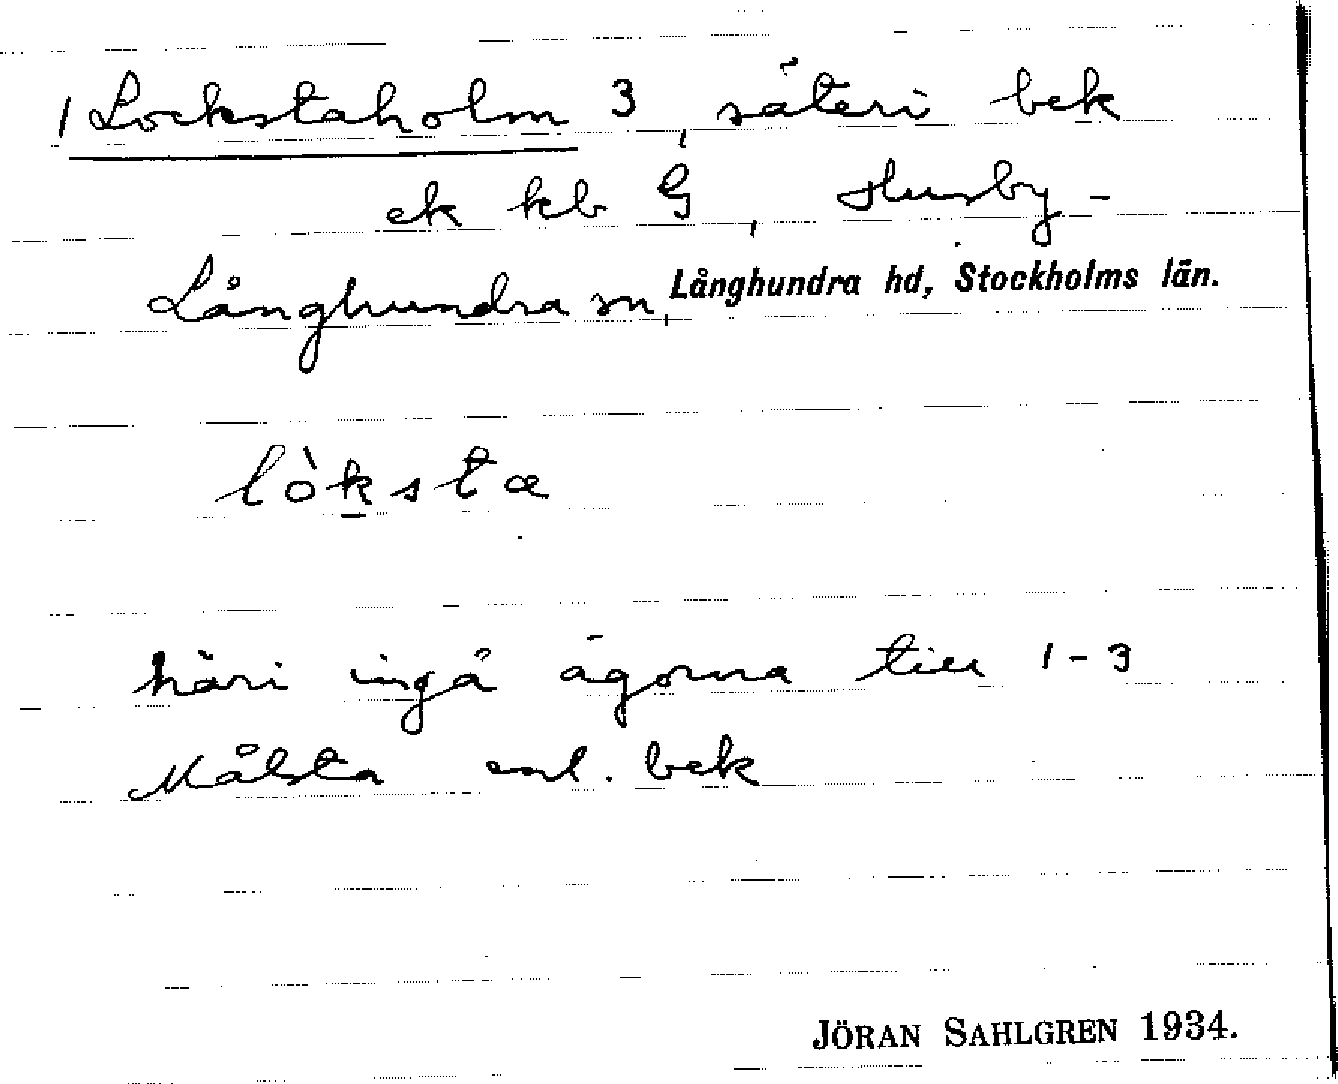 1 Lockstaholm 3, säteri bek
ek kb G, Husby-
Långhundra sn, Långhundra hd, Stockholms län.
lòksta
häri ingå ägorna till 1-3
Målsta enl. bek
JÖRAN SAHLGREN 1934.